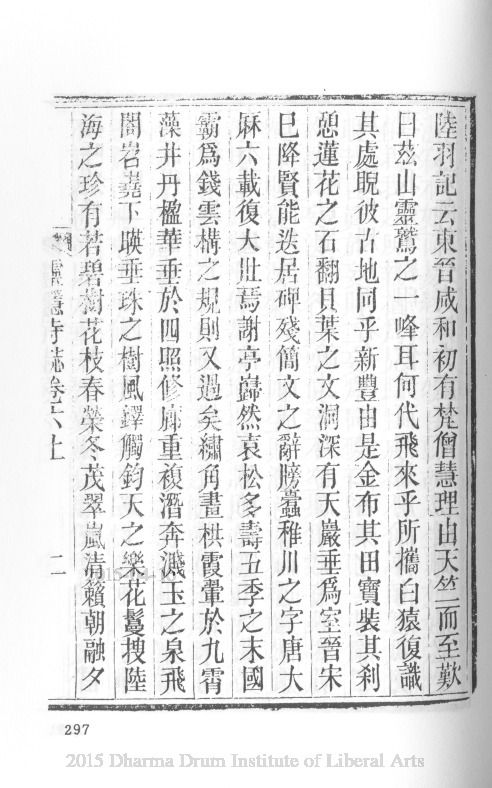 陸羽記云東晉咸和初有梵僧慧理由天竺而至歎
曰茲山靈鷲之一峰耳何代飛來乎所攜白猿復識
其處睨彼古地同乎新豐由是金布其田寶裝其刹
憩蓮花之石翻貝葉之文洞深有天巖垂為室晉宋
巳降賢能迭居碑殘簡文之辭牓蠹稚川之字唐大
厤六載復大壯焉謝亭巋然袁松多壽五季之末國
霸爲錢雲構之規則又過矣繡角畫栱霞翬於九霄
藻井丹楹華垂於四照修廊重複潛奔濺玉之泉飛
閣岧嶤下暎垂珠之樹風鐸觸鈞天之樂花鬘搜陸
海之珍有若碧樹花枝春榮冬茂翠嵐清籟朝融夕
寺誌卷六上 二
297
2015 Dharma Drum Institute of Liberal Arts